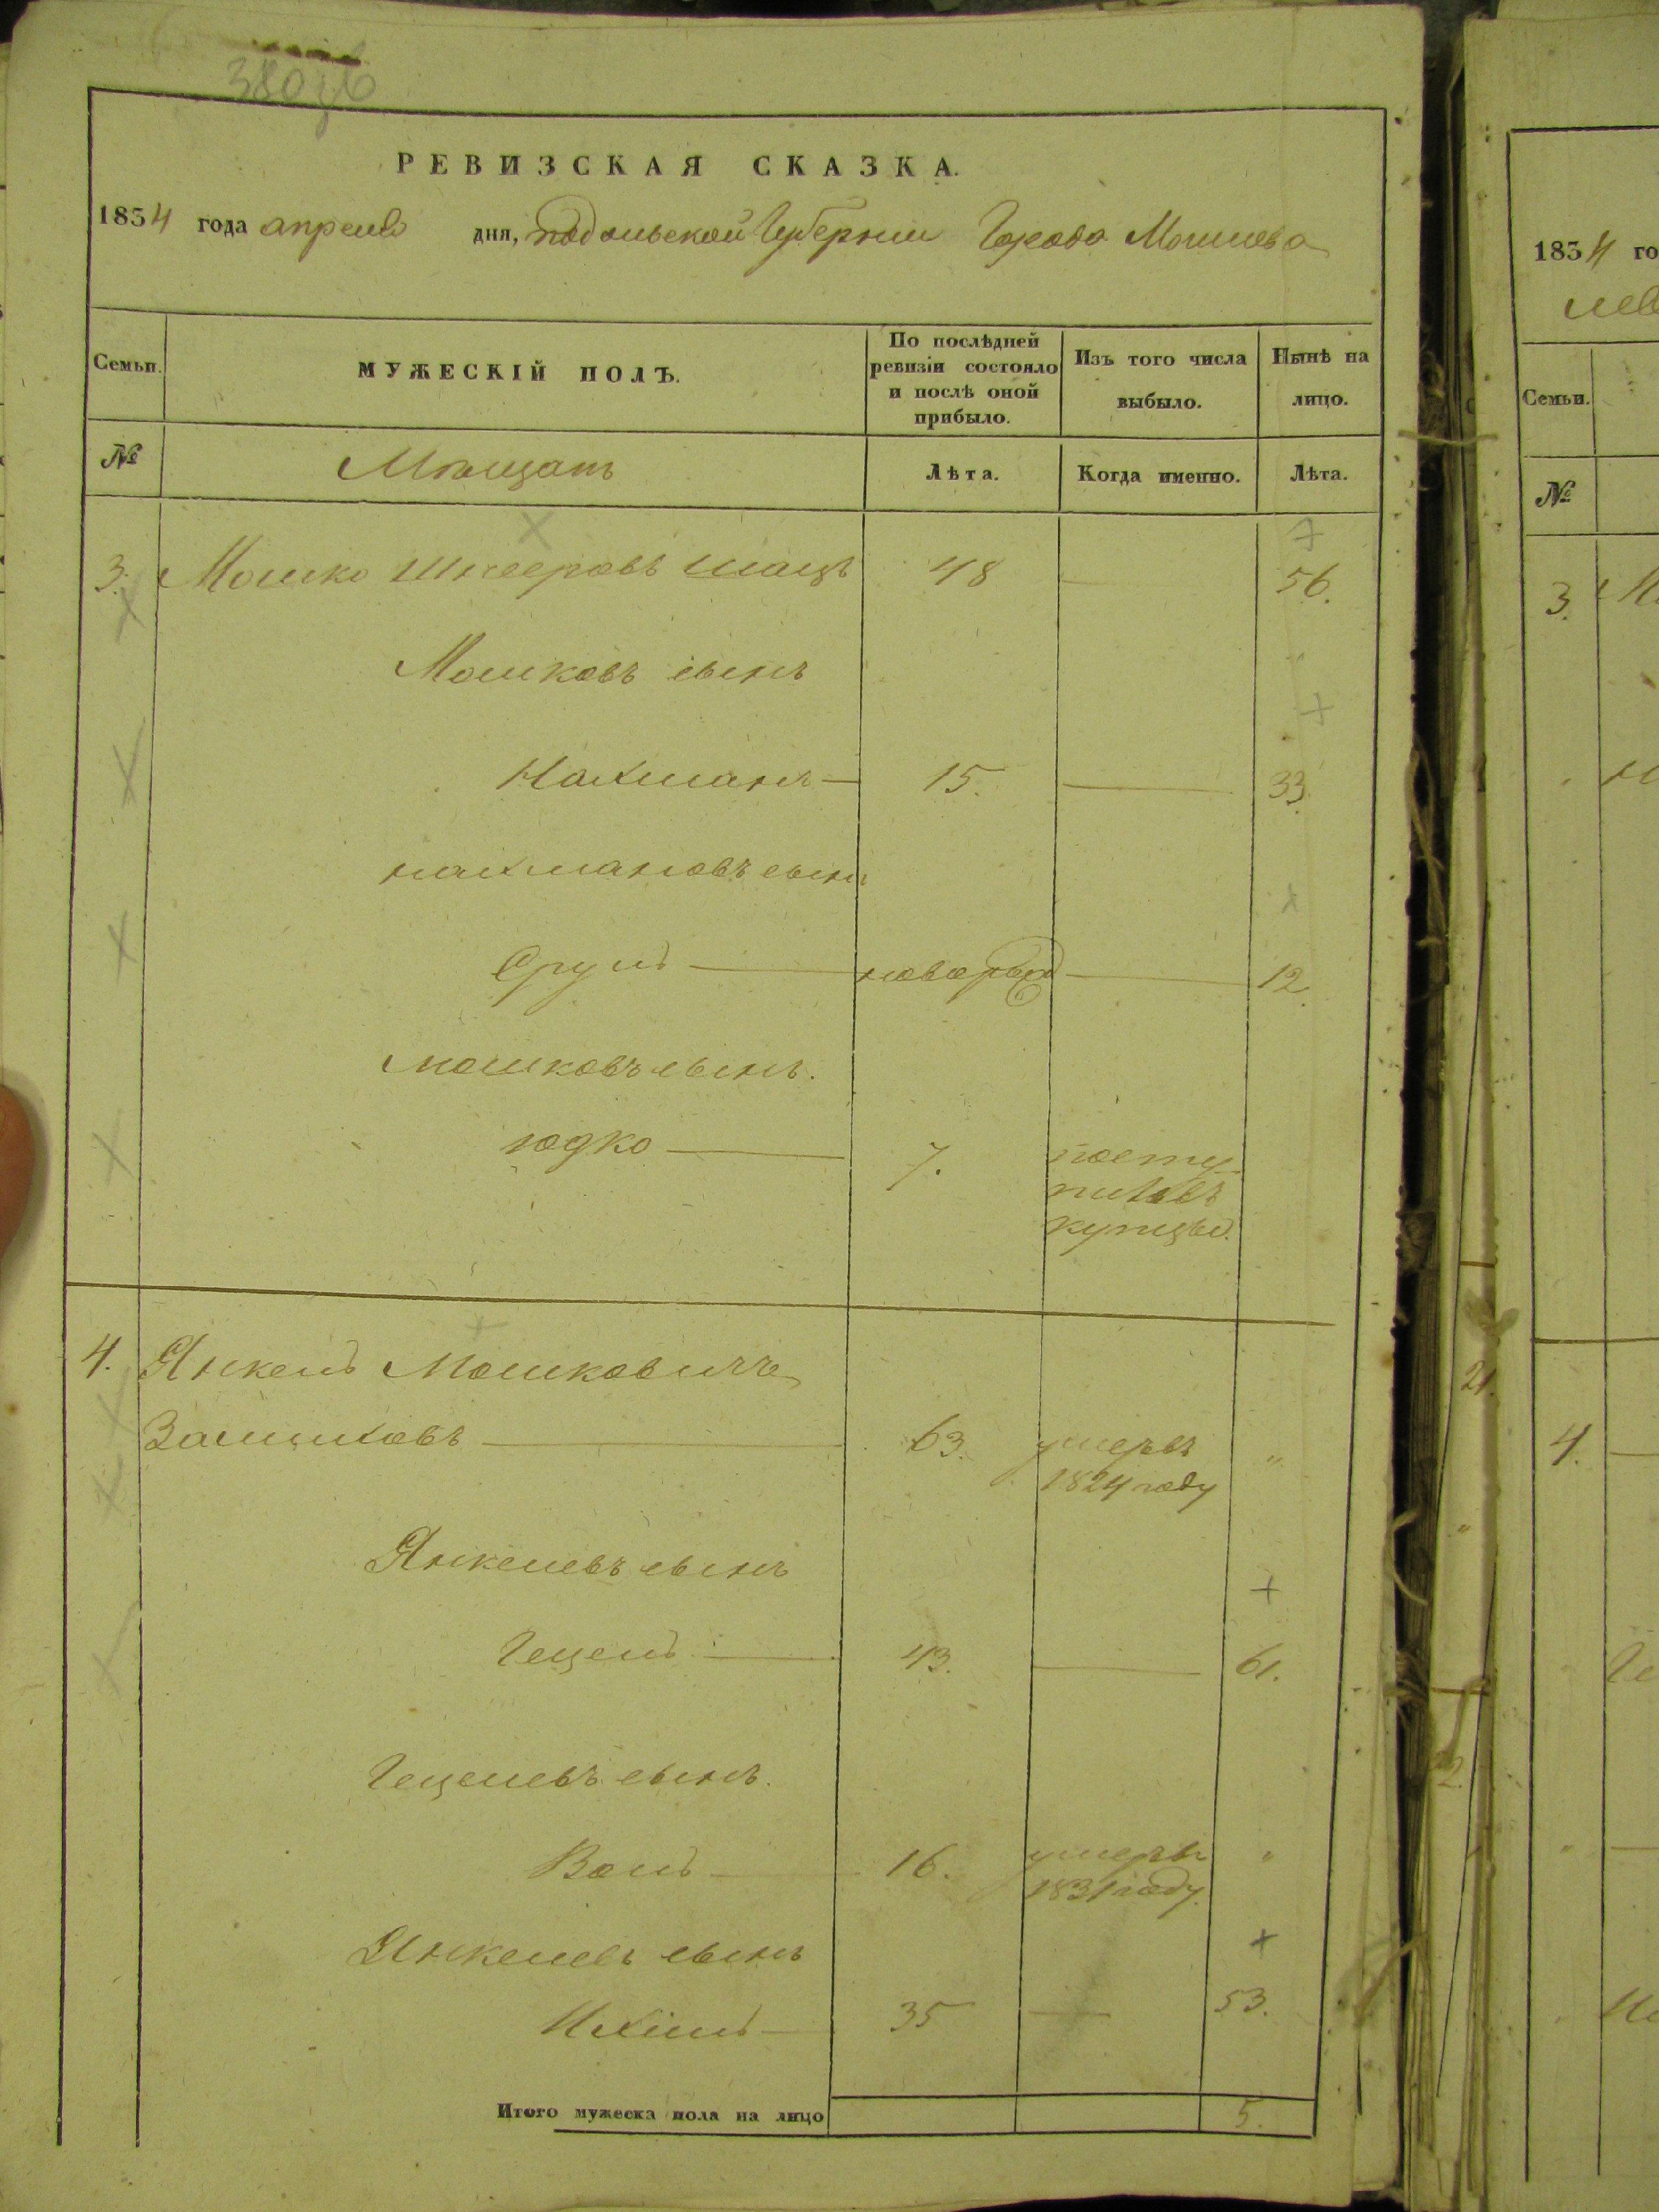 380 об
РЕВИЗСКАЯ СКАЗКА.
1834 года апреля дня, подольской Губернии Города Могилева
Семьи. МУЖЕСКІЙ ПОЛЪ. По послѣдней ревизіи состояло и послѣ оной прибыло. Изъ того числа выбыло. Нынѣ на лицо.
№ Мѣщанъ Лѣта. Когда именно. Лѣта.
3. Мошко Шнееровъ Шацъ 48 56.
Мошковъ сынъ
Нахманъ 15. 33.
нахмановъ сынъ
Сруль новорож 12.
мошковъ сынъ.
юдко 7. посту-
пилъ въ
купцы.
4. Янкель Мошковичъ
63. умеръ въ "
1824 году
Янкелевъ сынъ
Гецель 43. 61.
Гецелевъ сынъ.
Волъ 16. умеръ "
1831 году.
Янкелевъ сынъ
Ихіль 35 53.
Итого мужеска пола на лицо 5.
1834 го
Семьи.
№
3.
21.
4.
22.